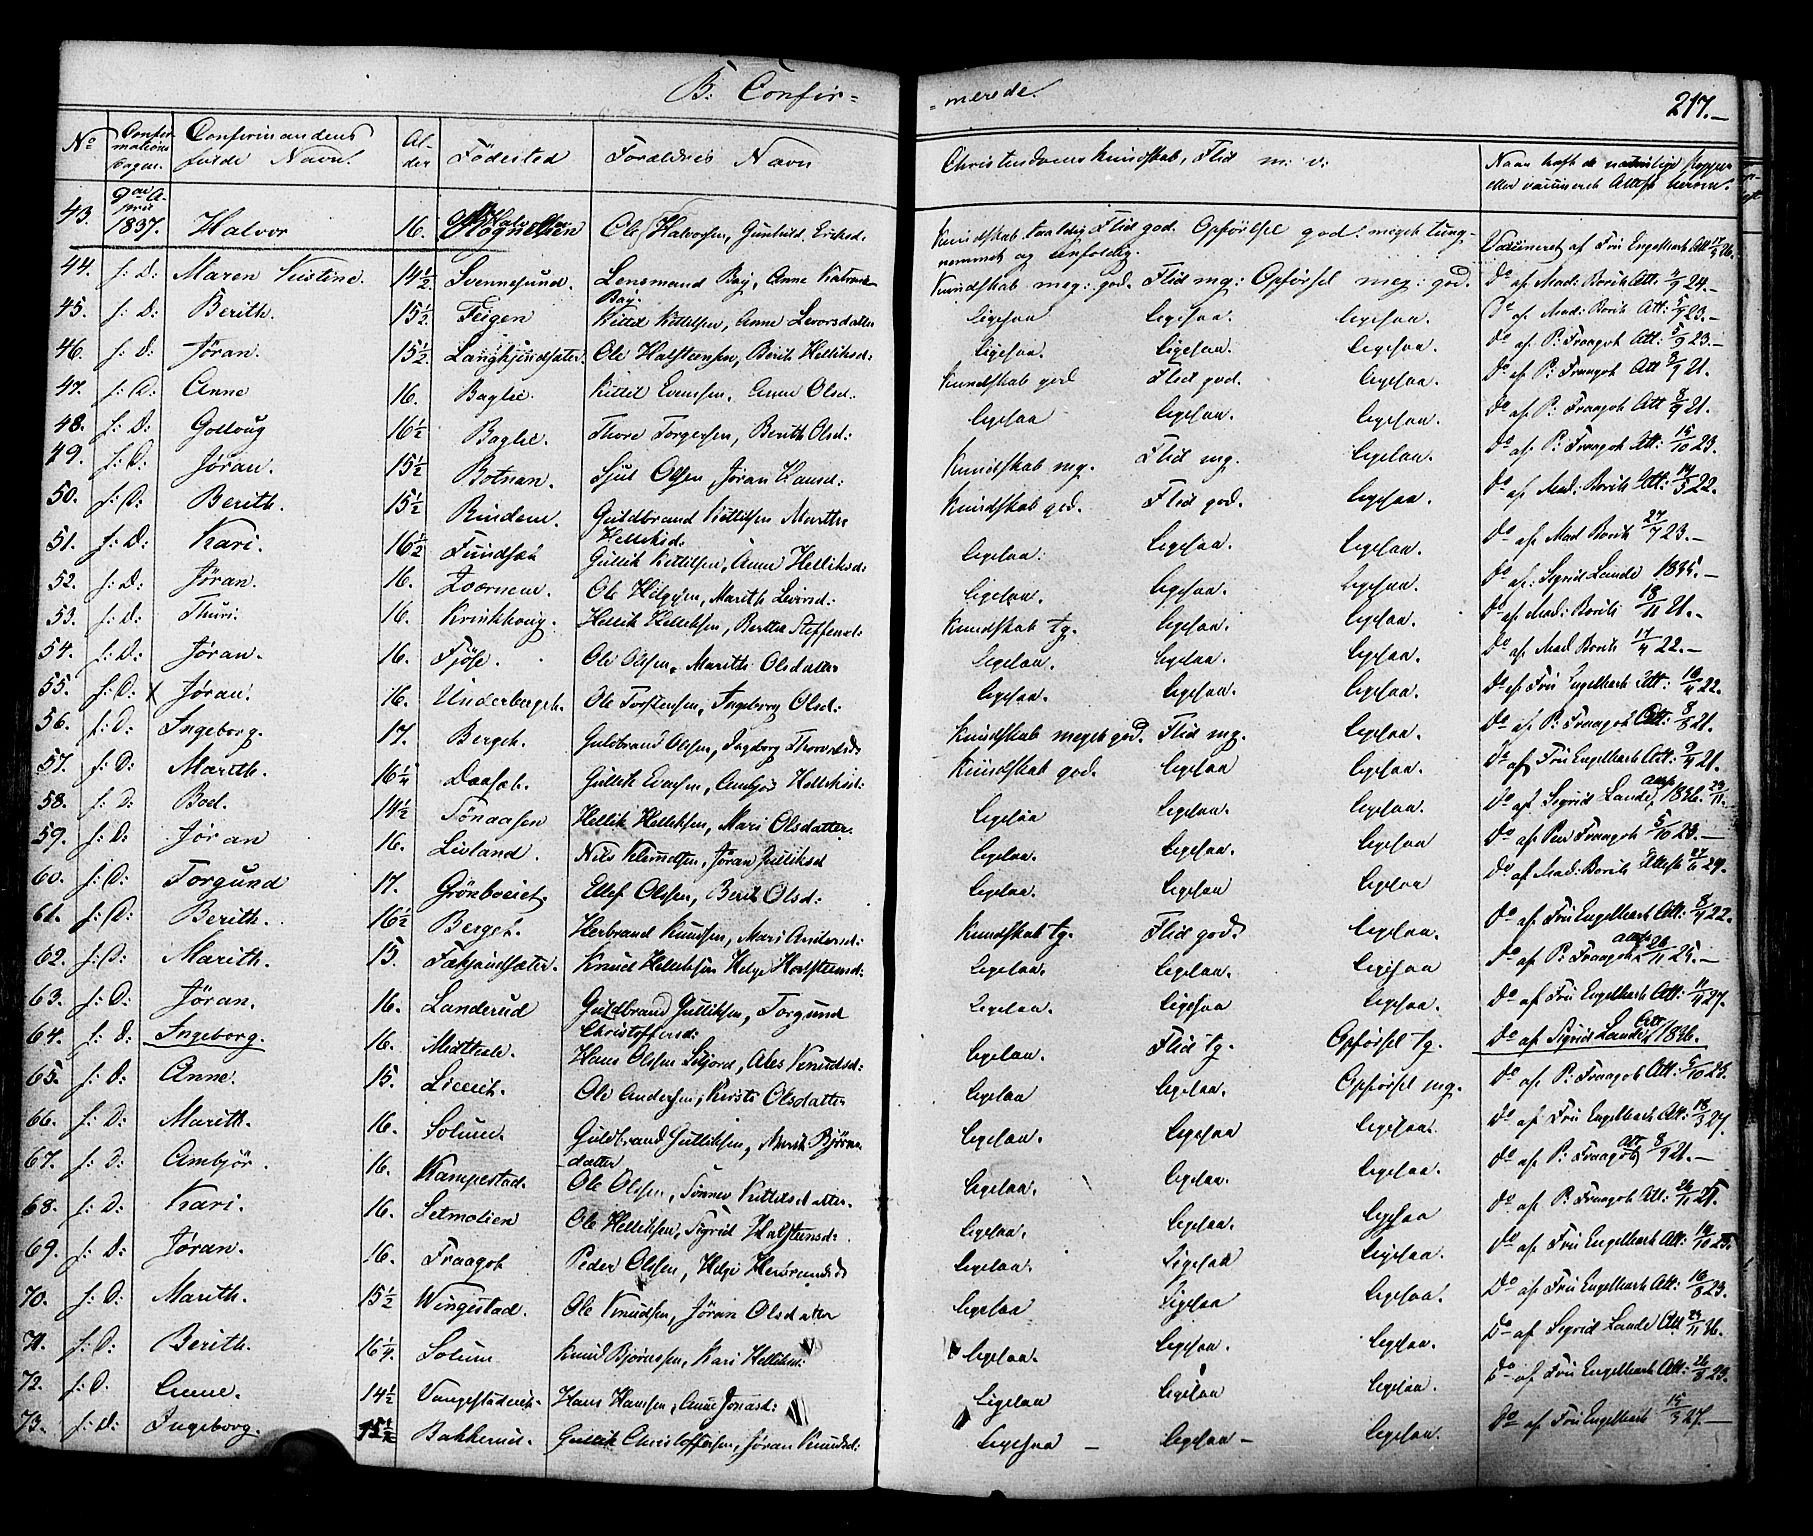 B: Confir-
-merede.
217.-
No Confirmations Dagen. Confirmandens fulde Navn. Alder Födested Forældres Navn Christendoms Kundskab, Flid m: v: Naar havt de naturlige Kopper eller vaccineret Attest herom.
43. 9de April 1837. Halvor 16. Ole Halvorsen, Gunhild Eriksd: Kundskab taalelig Flid god. Opförsel god. meget tungnemmet og eenfoldig. Vaccineret af Fru Engelbach Att:
44. f: D: Maren Kristine. 14½ Svennesund. Lensmand Bay, Anne Katrine Bay. Kundskab meg: god. Flid mg: Opførsel meg: god. Do af Mad: Borch Att: 24.-
45. f: D: Berith. 15½ Feigen Kittel Kittilsen, Anne Levorsdatter Ligesaa Ligesaa. Ligesaa. Do af Mad: Borch Att: 5/9 23.-
46. f: D: Jøran. 15½ Ole Halsteensen, Berit Helliksd: Ligesaa. Ligesaa. Ligesaa. Do af P: Fraagot Att: 5/9 23.-
47. f: D: Anne 16. Baglie. Kittil Evensen, Anne Olsd: Kundskab god Flid god. Ligesaa. Do af P: Fraagot Att 8/9 21.
48. f: D: Golloug 16½ Baglie. Thore Torgersen, Berith Olsd: Ligesaa Ligesaa. Ligesaa. Do af P: Fraagot Att 8/9 21.
49. f: D: Jøran. 15½ Botnan. Sjul Olsen, Jöran Hansd: Kundskab mg. Flid mg. Ligesaa. Do af P: Fraagot Att: 15/10 23.
50. f: D: Berith. 15½ Rindem. Guldbrand Kittilsen Marthe Helliksd: Kundskab god. Flid god. Ligesaa. Do af Mad: Borch Att: 14/5 22.
51. f: D: Kari. 16½ Gullik Kittilsen, Anne Helliksd: Ligesaa. Ligesaa. Ligesaa. Do af Mad Borch 27/7 23.-
52. f: D: Jøran. 16. Ole Helgesen, Marith Levorsd: Ligesaa. Ligesaa. Ligesaa. Do af: Sigrid Lande 1835.-
53. f: D: Thuri. 16. Krinkhoug. Hellik Helliksen, Bertha Steffensd: Kundskab tg. Ligesaa. Ligesaa. Do af Mad: Borch 18/11 21.-
54. f: D: Jøran. 16. Fjöse. Ole Olsen, Marith Olsdatter Ligesaa. Ligesaa. Ligesaa. Do af Mad Borch 17/4 22.-
55. f: D: x Jøran. 16. Underberget. Ole Torstensen, Ingeborg Olsd: Ligesaa. Ligesaa. Ligesaa. Do af Fru Engelbach Att: 22.
56. f: D: Ingeborg. 17. Berget. Guldbrand Olsen, Ingeborg Kundskab meget god. Flid mg. Ligesaa. Do af P: Fraagot Att: 8/8 21.
57. f: D: Marith. 16¼ Daaset. Gullik Evensen, Ambjör Helliksd: Kundskab god. Ligesaa Ligesaa. Do af Fru Engelbach Att: 9/4 21.
58. f: D: Boel. 14½ Tönaasen Hellik Helliksen, Mari Olsdatter. Ligesaa Ligesaa. Ligesaa. Do af Sigrid Lande, Att: 1836.
59. f: D: Jöran 16. Livland. Nils Jöran Gulliksd Ligesaa. Ligesaa. Ligesaa Do af Per Fraagot 5/10 23.-
60. f: D: Torgund 17. Grönboeiet. Ellef Olsen, Berit Olsd: Ligesaa. Ligesaa Ligesaa Do af Mad: Borch Attest 27/6 24.
61. f: D: Berith. 16½ Berget. Herbrand Knudsen, Mari Andersd: Kundskab tg. Flid god. Ligesaa. Do af Fru Engelbach Att: 8/4 22.
62. f: D: Marith. 15. Knud Helliksen Helge Halsteensd: Ligesaa. Ligesaa. Ligesaa Do af P: Fraagot Att: 25.-
63. f: D: Jöran. 16. Landerud Guldbrand Gulliksen, Torgund Christoffersd: Ligesaa. Ligesaa Ligesaa. Do af Fru Engelbach Att: 27.
64. f: D: Ingeborg. 16. Midtlie. Hans Olsen Knudsd: Ligesaa. Flid tg. Opførsel tg. Do af Sigrid Lande, Att 1836.
65. f: D: Anne. 15. Ole Andersen, Kirsti Olsdatter Ligesaa Ligesaa Opførsel mg. Do af P: Fraagot Att: 23.
66. f: D: Marith. 16. Solum. Guldbrand Gulliksen, Marit Björnsdatter Ligesaa. Ligesaa Ligesaa. Do af Fru Engelbach Att: 18/3 27.
67. f: D: Ambjör. 16. Kampestad. Ole Olsen, Tönnes Kittilsdatter. Ligesaa. Ligesaa. Ligesaa. Do af P: Fraagot, Att 8/9 21.-
68. f: D: Kari. 16. Setmolien Ole Helliksen, Sigrid Halsteensd: Ligesaa. Ligesaa. Ligesaa Do af P: Fraagot Att: 26/11 21.
69. f: D: Jöran. 16. Fraagot Peder Olsen, Helge Ligesaa. Ligesaa Ligesaa. Do af Fru Engelbach Att: 25.
70. f: D: Marith. 15½ Wingestad. Ole Knudsen, Jöran Olsdatter Ligesaa Ligesaa Ligesaa. Do af Fru Engelbach Att: 16/8 23.
71. f: D: Berith. 16¼ Solum Knud Bjørnsen, Kari Helliksd: Ligesaa. Ligesaa. Ligesaa. Do af Sigrid Lande Att: 36.
72. f: D. Anne. 14½ Hans Hansen, Anne Jonasd: Ligesaa Ligesaa Ligesaa. Do af Fru Engelbach Att: 26/8 23.
73. f: D: Ingeborg. 15½ Bakkerud. Gullik Christoffersen, Jöran Knudsd: Ligesaa - Ligesaa - Ligesaa. Do af Fru Engelbach 15/3 27.-